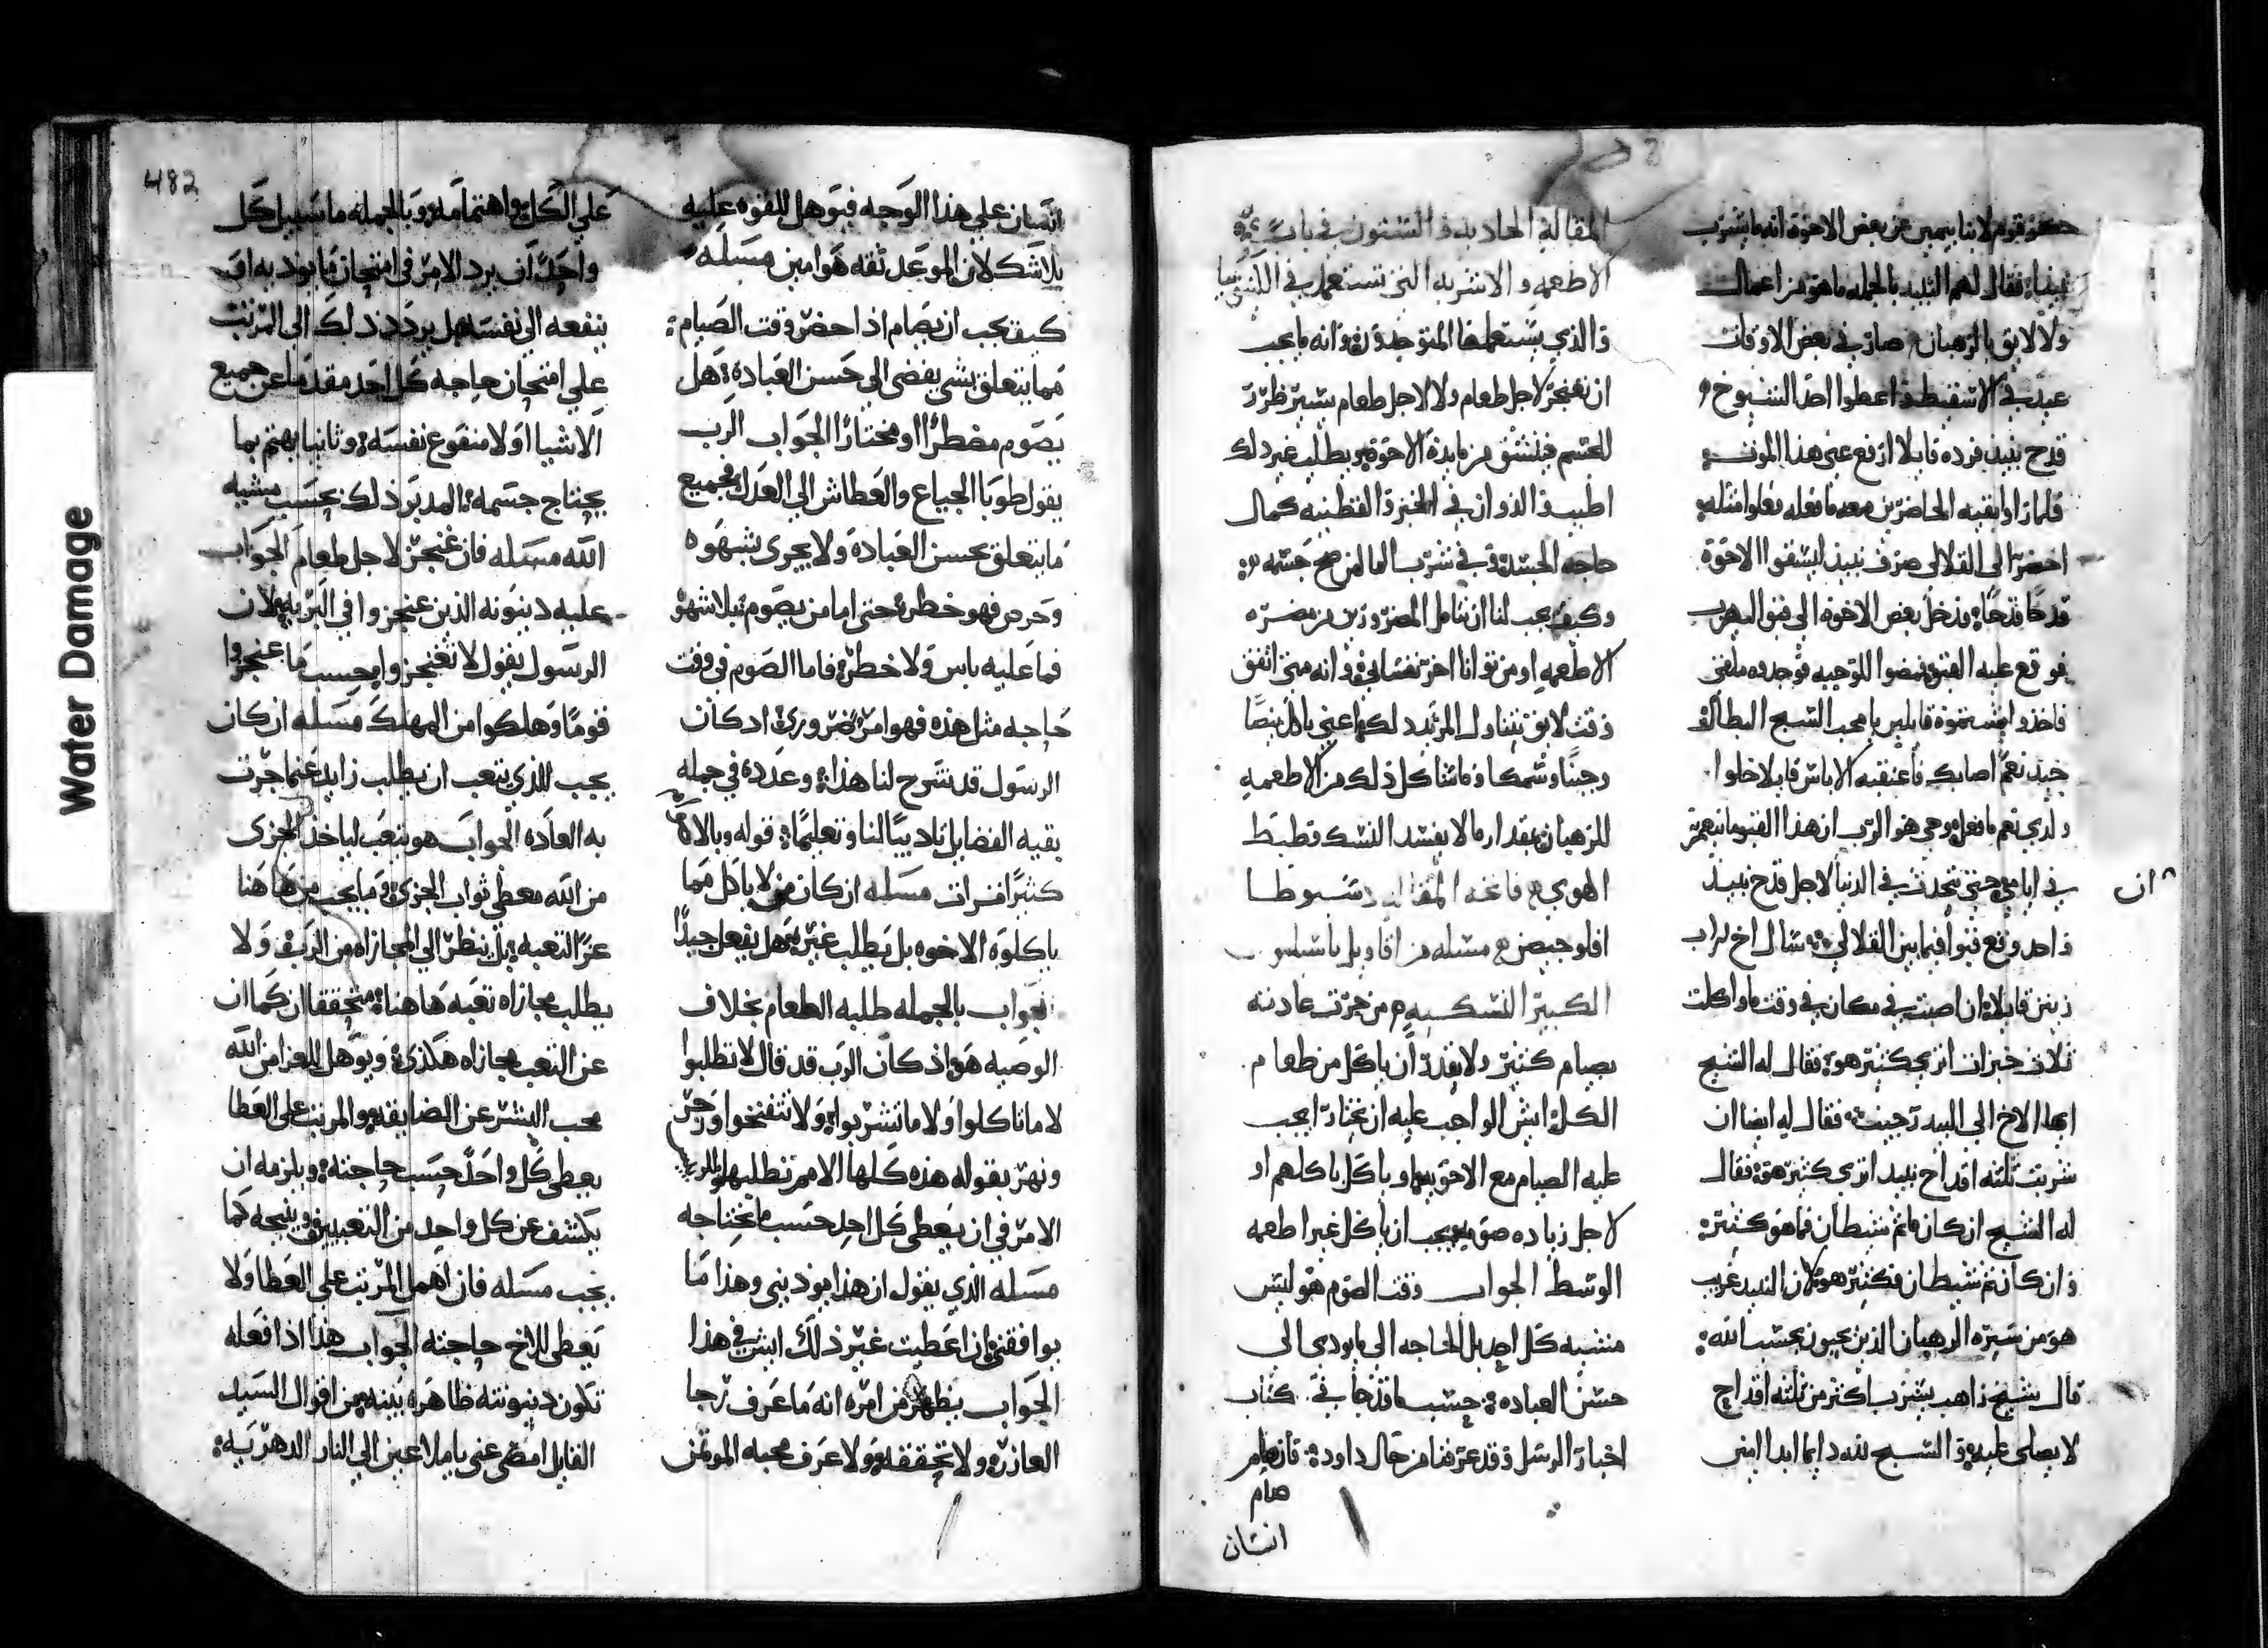 حكوا قوم لانبا بيمين عن بعض الاخوة انه ما يشرب
نبيذا فقال لهم النبيد بالجمله ما هو من اعمال
ولا لايق بالرهبان صار في بعض الاوقات
عيد في الاسقيط واعطوا احد الشيوخ
قدح نبيد فرده قايلا ارفع عني هذا الموت
فلما راوا بقيه الحاضرين معه ما فعله فعلوا مثله
احضر الى القلالي ظرف نبيذ ليسقوا الاخوة
قدحًا قدحًا فدخل بعض الاخوة الى قبو الهرب
فوقع عليه القبو فمضوا للوجبه فوجدوه ملقى
فاخذوا يشتموه قايلين يا محب السبح البطال
جيد نعمّ اصابك فاعتقبه الاباس قايلا خلوا
ولدي نعم ما فعل وحي هو الرب ان هذا القبو ما يعمر
في ايامي حتى يتحدث في الدنيا لاجل قدح نبيد
ان
واحد وقع قبوا فيما بين القلالي سال اخ لراب
زينن قايلا ان اصبت في مكان في وقت ما واكلت
ثلاث خبزات اترى كثير هو فقال له الشيخ
ايها الاخ الى البيدر جيت فقال له ايضا ان
شربت ثلثه اقداح نبيد اترى كثير هو فقال
له الشيخ ان كان ما تم شيطان فما هو كثير
وان كان تم شيطان فكثير هو لان النبيد غريب
هو من سيره الرهبان الذين يحيون بحسب الله
قال شيخ راهب يشرب اكثر من ثلثه اقداح
لا يصلى عليه والسبح لله دايما ابدا امين
المقالة الحاديه والستون في باب
الاطعمه والاشربه التي تستعمل في الكنوبيا
والذي يستعملها المتوحدون وانه ما يجب
ان نعنجز لاجل طعام ولا لاجل طعام يسير نظرد
للجسم فينشق من مايدة الاخوة ويطلب غير دلك
اطيب والذ وان في الخبز والقطنيه كمال
حاجه الجسد وفي شرب الما لمن صح جسمه
وكيف يجب لنا ان نتامل المضرورين من مضرة
الاطعمه او من تواتا اخر نفساني وانه متى اتفق
وقت لايق بتناول المرتد دلك اعني ياكل بيضًا
وجبنًا وسمكا وما شاكل ذلك من الاطعمه
للرهبان بمقدار ما لا يفسد النسك وطبط
الهوى فاتحه المقاله
افلوجيصن مسله من اقاويل باسيليوس
الكبير النسكيه من جرت عادته
بصيام كثير ولا يقدر ان ياكل من طعام
الكل ايش الواجب عليه ان يختار ايجب
عليه الصيام مع الاخوة وياكل باكلهم او
لاجل زياده صومه يجب ان ياكل غير اطعمه
الوسط الجواب وقت الصوم هو ليس
مشيه كل احد بل الحاجه الى ما يودي الى
حسن العباده حسب ما قد جا في كتاب
اخبار الرسل وقد عرفنا من حال داود فان
صام
انسان
انسان علي هذا الوجه فيوهل للقوه عليه
بلا شك لان الموعد ثقه هو امين مسله
كيف يجب ان يصام اذا حضر وقت الصيام
مما يتعلق بشي يفضي الى حسن العبادة هل
يصوم مضطرًا او مختارًا الجواب الرب
يقول طوبا الجياع والعطاش الي العدل فجميع
ما يتعلق بحسن العبادة ولا يجرى بشهوه
وحرص فهو خطر حتى اما من يصوم بلا شهوه
فما عليه باس ولا خطر فاما الصوم في وقت
حاجه مثل هذه فهو امر ضروري اد كان
الرسول قد شرح لنا هذا وعدده في جمله
بقيه الفضايل تاديبًا لنا وتعليمًا قوله وبالا
كثيرًا مرات مسله ان كان من لا ياكل مما
ياكلوه الاخوه بل يطلب غيره هل يفعل جيدًا
الجواب بالجمله طلبه الطعام بخلاف
الوصيه هو اذ كان الرب قد قال لا تطلبوا
لا ما تاكلوا ولا ما تشربوا ولا تشمخوا وجر
ونهر بقوله هذه كلها الامم تطلبها
الامر في ان يعطى كل احد حسب ما يحتاجه
مسله الذي يقول ان هذا يوديني وهذا ما
يوافقني ان اعطيت غير ذلك ايش في هذا
الجواب يظهر من امره انه ما عرف رجا
العازر ولا تحققه ولا عرف محبه الموتمن
482
علي الكل واهتمامه وبالجمله ما سبيل كل
واحد ان يرد الامر في امتحان ما يوديه او
ينفعه الى نفسه بل يردد دلك الى المرتب
علي امتحان حاجه كل احد مقدمًا عن جميع
الاشيا اولا منفوع نفسه وثانيا يهتم بما
يحتاج جسمه المدبر ذلك بحسب مشيه
الله مسله فان عنجز لاجل طعام الجواب
عليه دينونه الذين عنجزوا في البريه لان
الرسول يقول لا تعنجزوا بحسب ما عنجزوا
قومًا وهلكوا من المهلك مسله ان كان
يجب للذي يتعب ان يطلب زايد عما جرت
به العاده الجواب هو يتعب لياخذ الجزى
من الله معطي ثواب الجزى وما يجب من هاهنا
عز التعبه بل ينظر الي المجازاه من الرب ولا
يطلب مجازاه تعبه هاهنا متحققا ان كما ان
عن التعب مجازاه هكذى ويوهل للعزا من الله
محب البشر عن الضايقه والمرتب علي العطا
يعطي كل واحد حسب حاجته ويلزمه ان
يكشف عن كل واحد من التعبين ونيحه كما
يجب مسله فان اهمل المرتب علي العطا ولا
يعطي للاخ حاجته الجواب هذا اذا فعله
تكون دينونته ظاهره بينه من اقوال السيد
القايل امضي عني يا ملاعين الي النار الدهريه
Water Damage